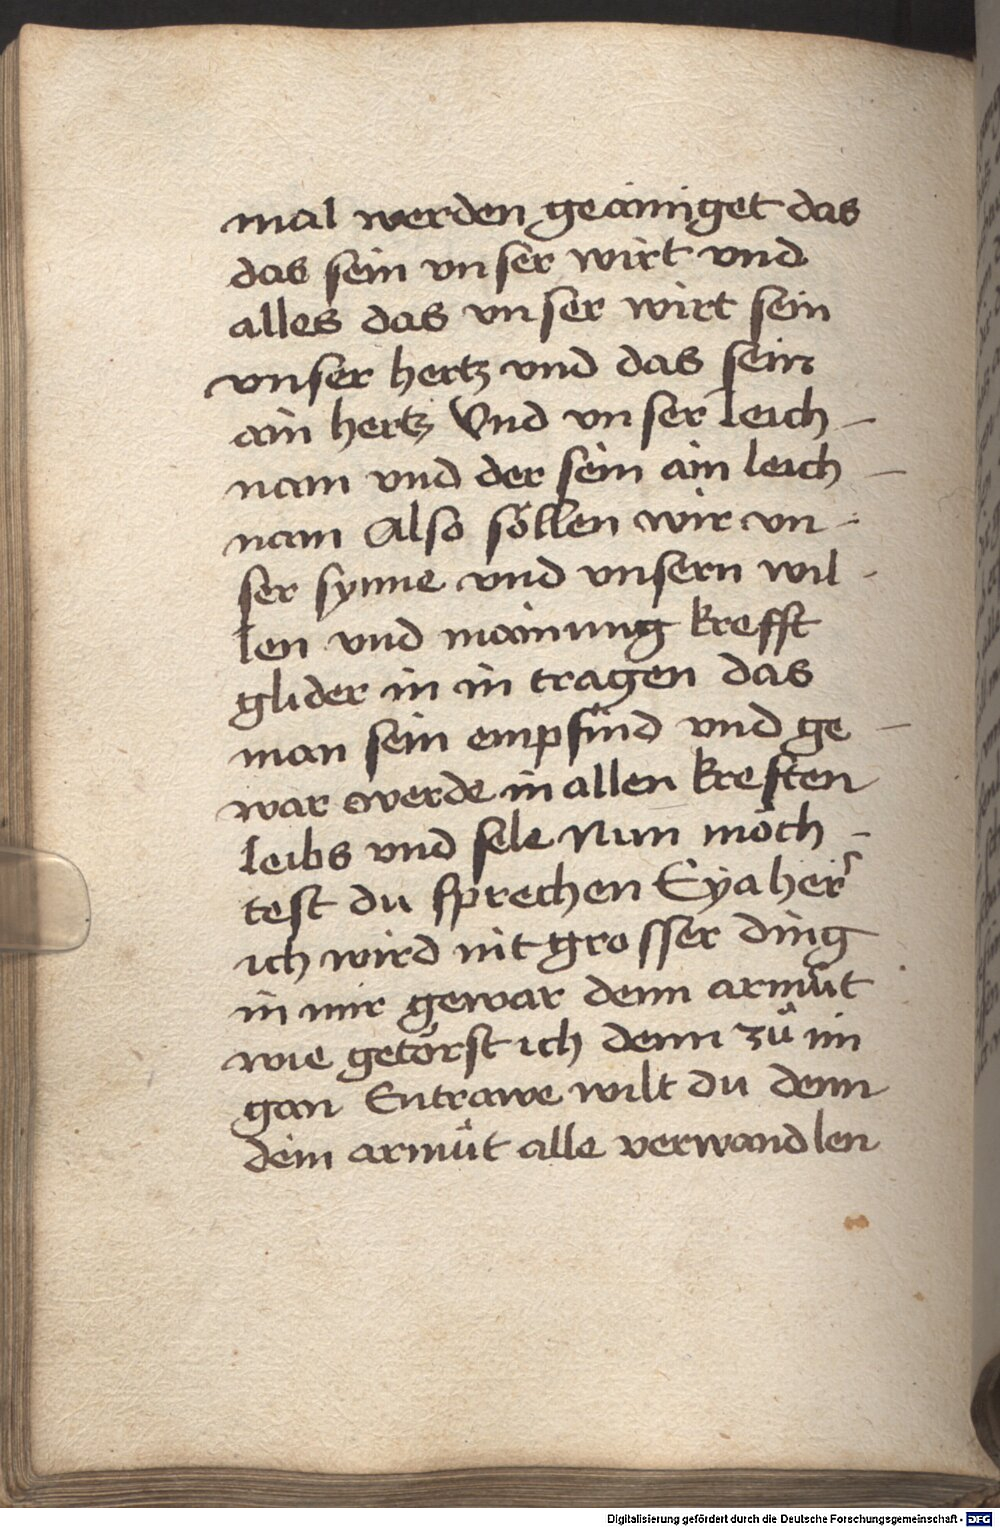 mal werden geainiget das
das sein vnser wirt vnd
alles das vnser wirt sein
vnser hertz vnd das sein
ain hertz Vnd vnser leich-
nam vnd der sein ain leich-
nam Also söllen wir vn-
ser synne vnd vnsern wil-
len vnd mainung krefft
glider in in tragen das
man sein empfind vnd ge-
war werde in allen kreften
leibs vnd sele Nun möch-
test du sprechen Eya herr
ich wird nit grosser ding
in mir gewar denn armůt
wie getörst ich denn zů im
gan Entrawe wilt du denn
dein armůt alle verwandlen
Digitalisierung gefördert durch die Deutsche Forschungsgemeinschaft - DFG